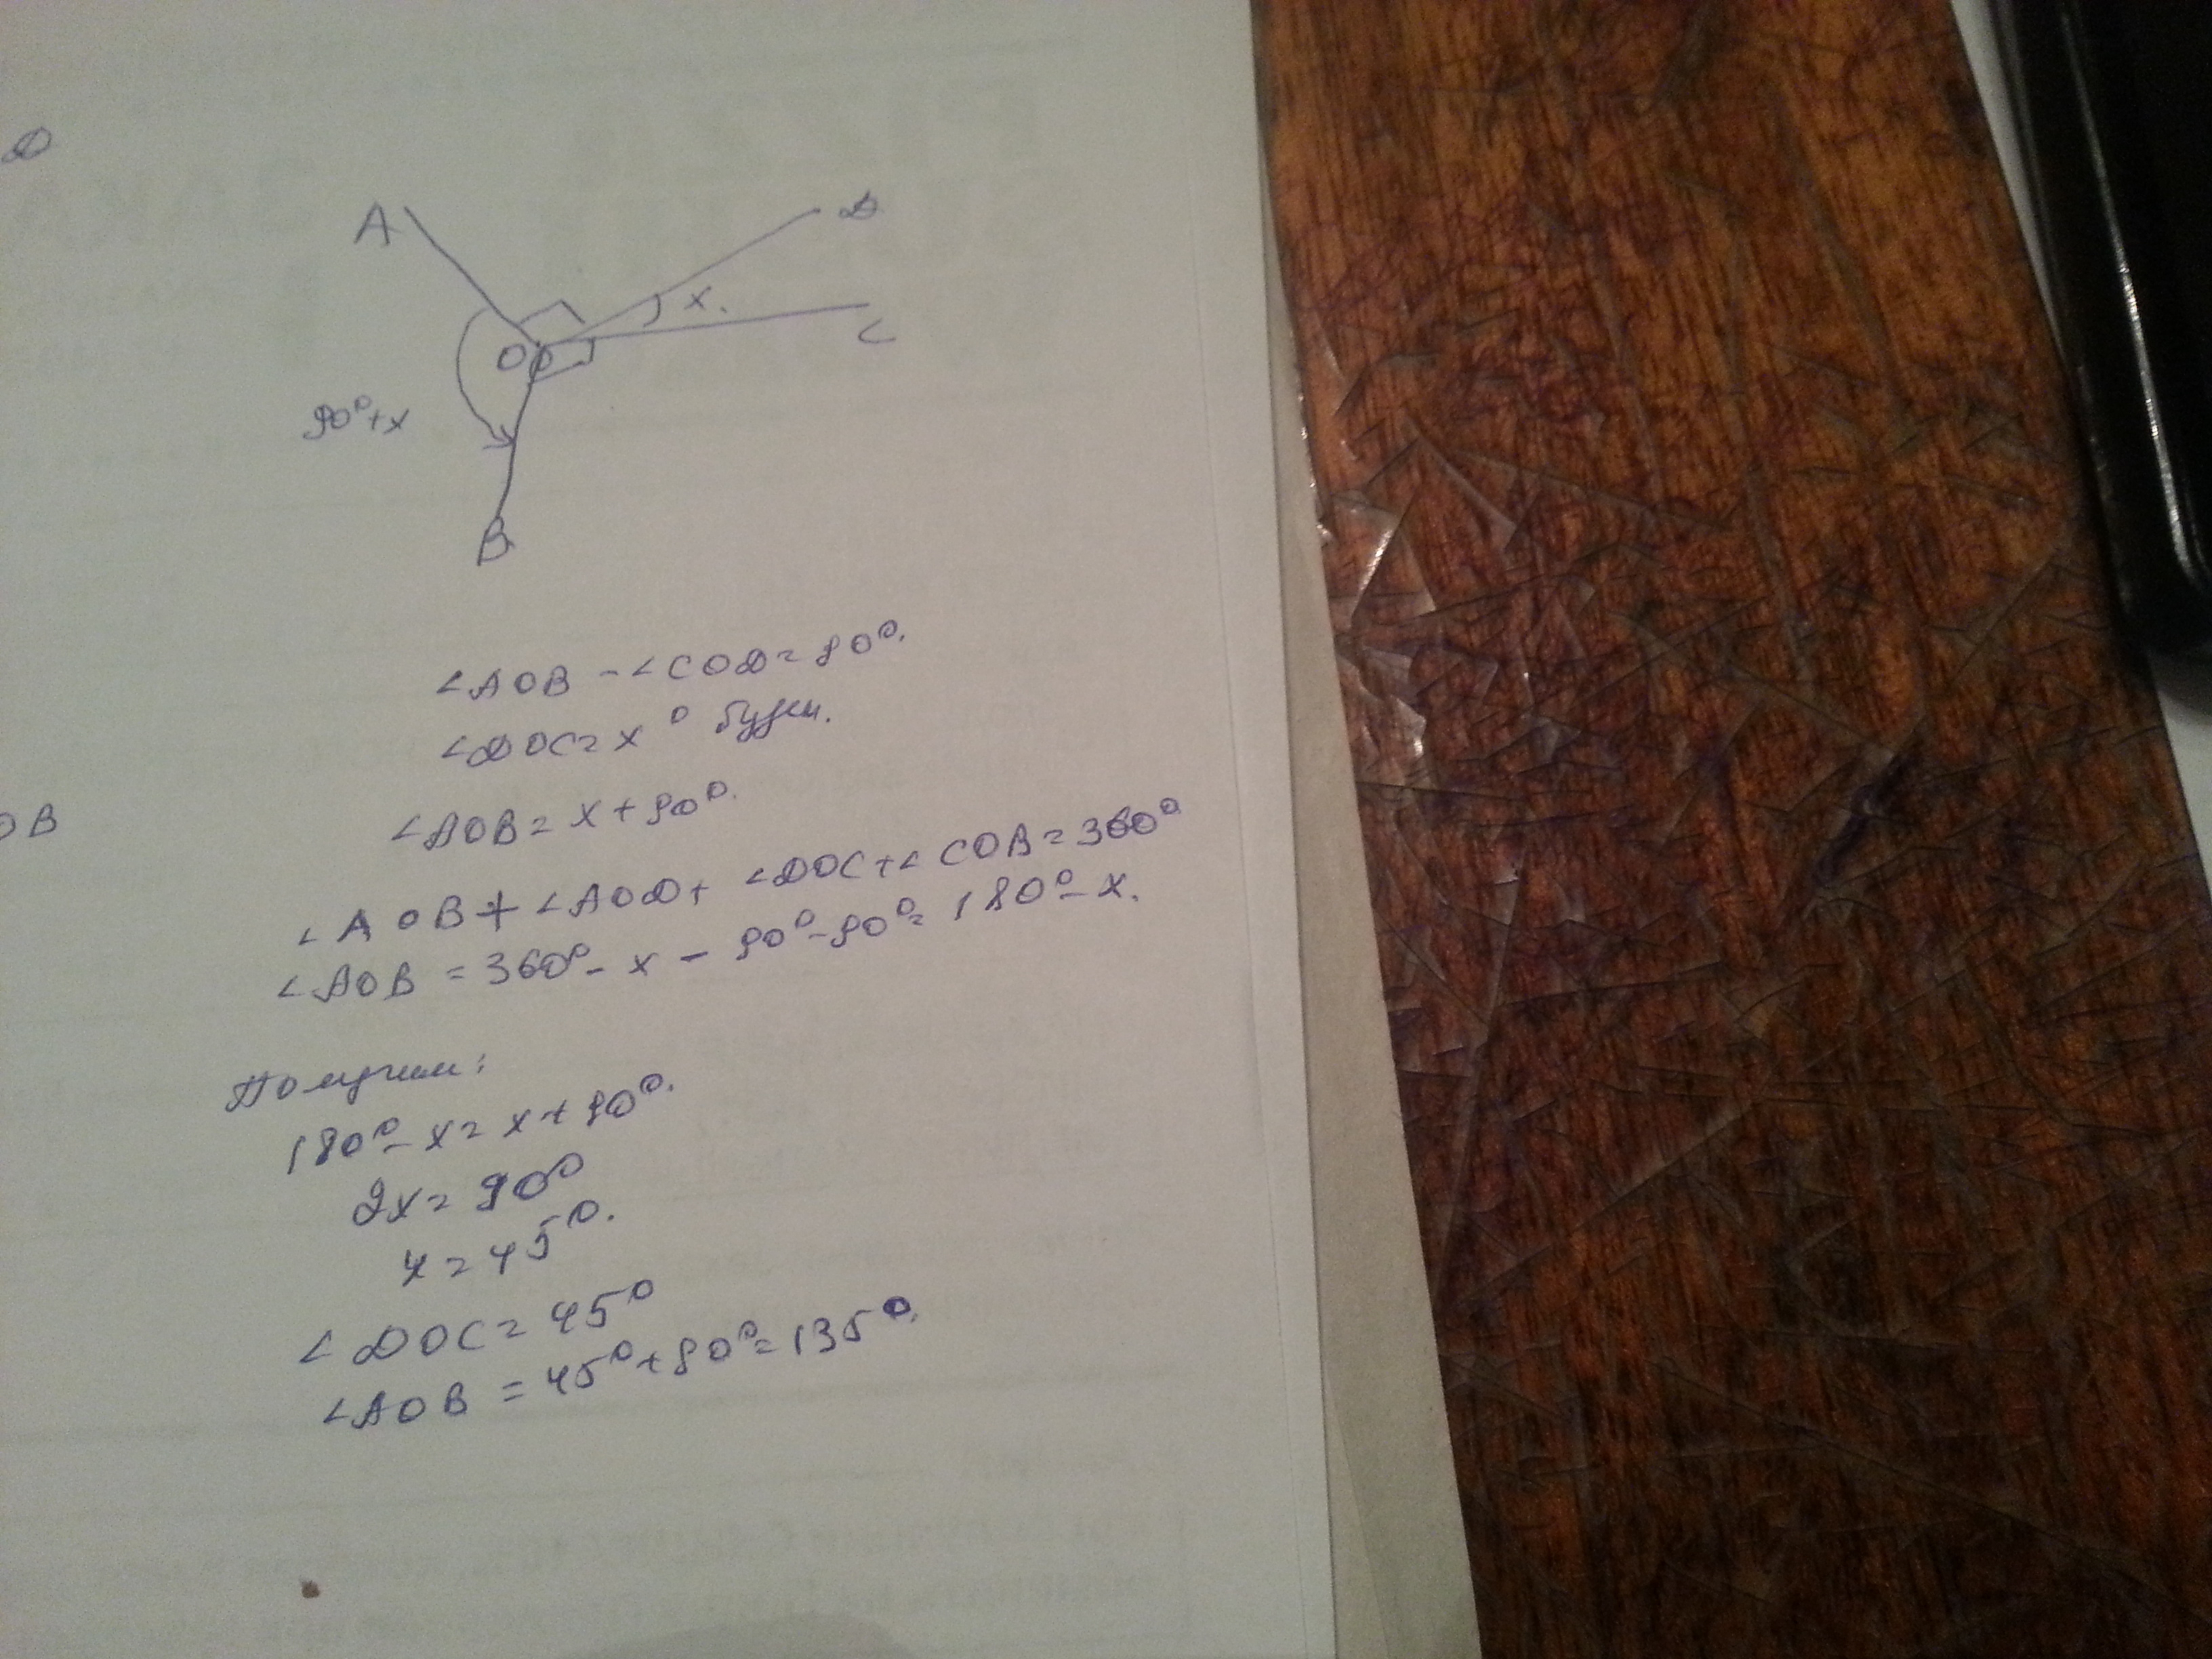 D
A
D
x.
C
O
90°+x
B
∠AOB - ∠COD = 90°.
∠DOC = x°
∠AOB = x + 90°.
ОВ
∠AOB + ∠AOD + ∠DOC + ∠COB = 360°
∠AOB = 360° - x - 90° - 90° = 180° - x.
Получим:
180° - x = x + 90°.
2x = 90°
x = 45°.
∠DOC = 45°
∠AOB = 45° + 90° = 135°.